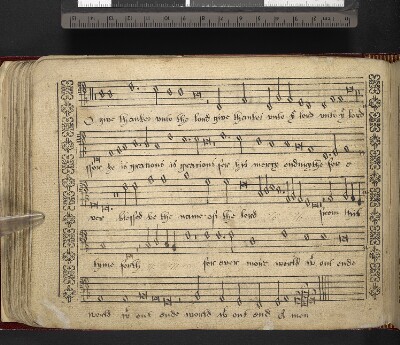 O give thankes unto the lord give thankes unto yͤ lord unto yͤ lord
ffor he is gracious is gracious for his mercy endurythe for e
ver blessed be the name off the lord from this
tyme forth for ever more world wᵗ out ende
world wᵗ out ende world wᵗ out end A men